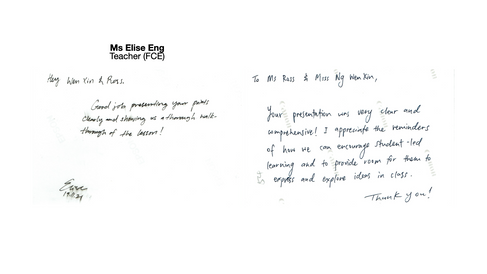 Ms Elise Eng
Teacher (FCE)
Hey Wen Xin & Ross,
Good job presenting your points
clearly and showing us a thorough walk-
through of the lesson!
To Ms Ross & Miss Ng Wen Xin,
Your presentation was very clear and
comprehensive! I appreciate the reminders
of how we can encourage student-led
learning and to provide room for them to
express and explore ideas in class.
Thank you!